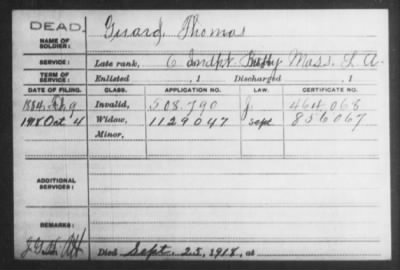 DEAD
NAME OF SOLDIER: Girard, Thomas
SERVICE: Late rank, 6 Indpt. Bat'y Mass. L. A.
TERM OF SERVICE: Enlisted , 1 Discharged , 1
DATE OF FILING. CLASS. APPLICATION NO. LAW. CERTIFICATE NO.
1884, Feb 9 Invalid, 508,790 J. 464,068
1918 Oct 4 Widow, 1129047 Sept 856067
Minor,
ADDITIONAL SERVICES:
REMARKS:
Died Sept. 25, 1918, at